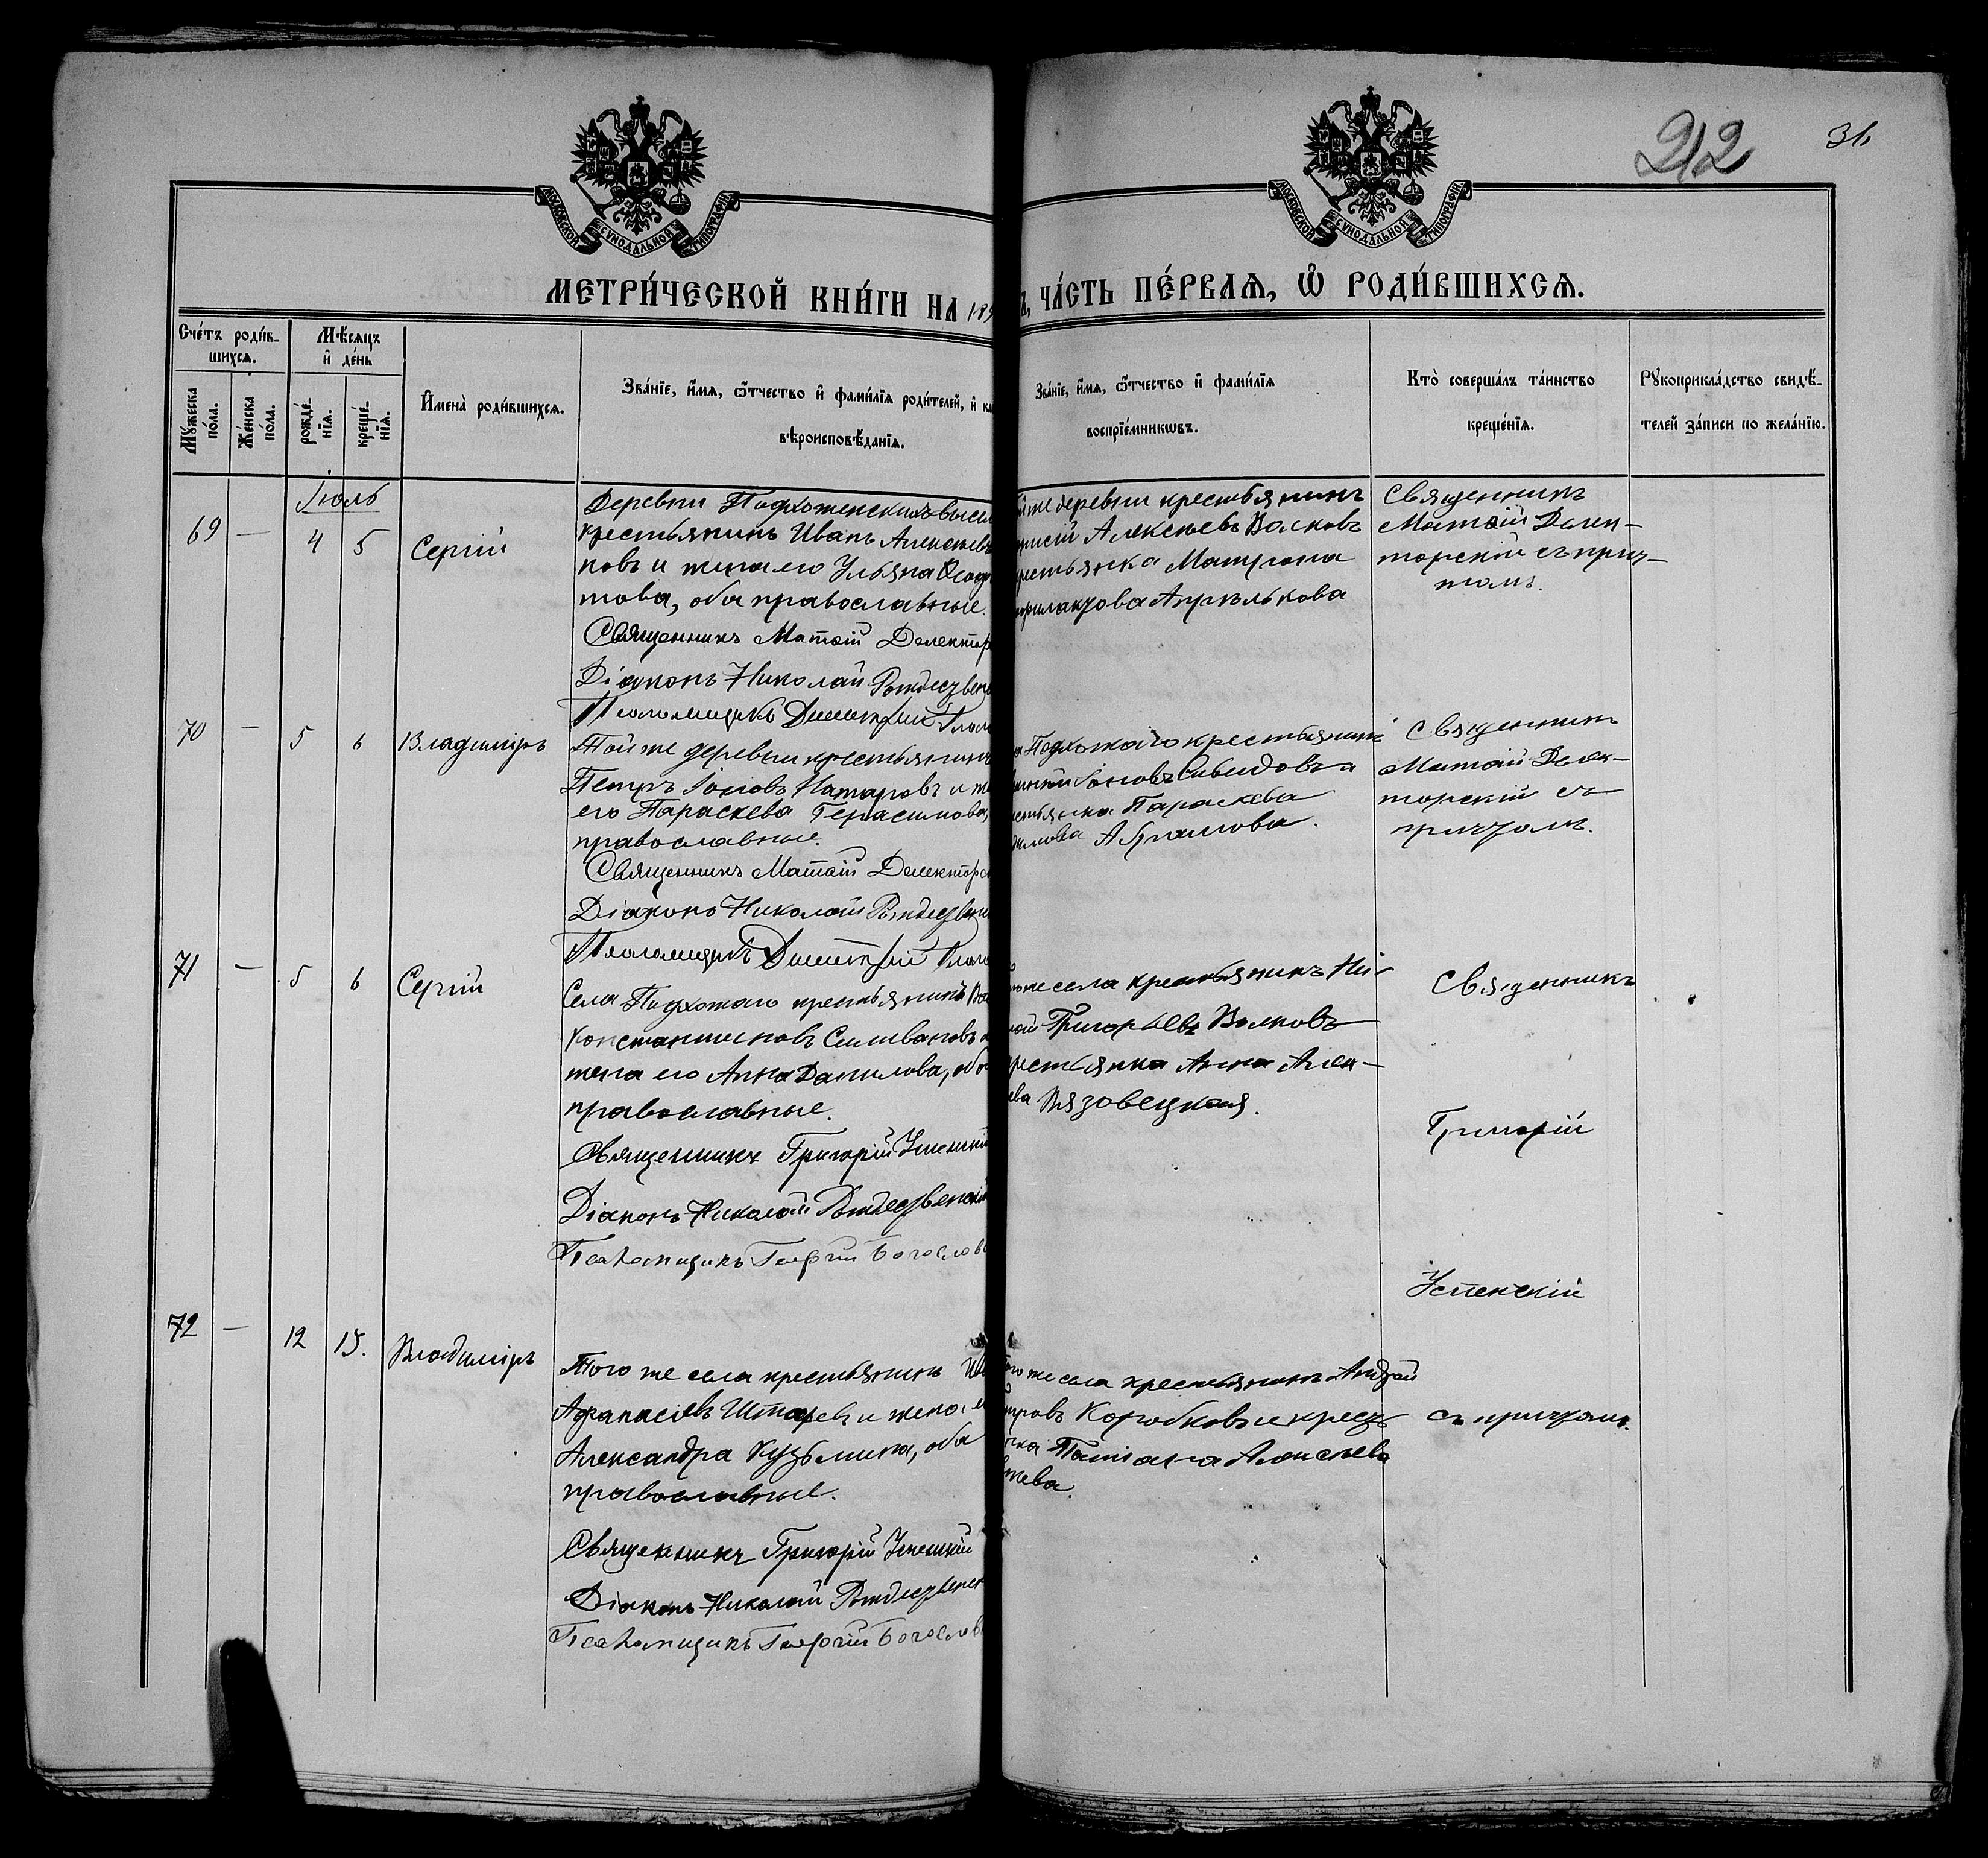 212
31
МОСКОВСКОЙ СѴНОДАЛЬНОЙ ТИПОГРАФІИ
МОСКОВСКОЙ СѴНОДАЛЬНОЙ ТИПОГРАФІИ
МЕТРИ́ЧЕСКОЙ КНИ́ГИ НА 189
ЧА́СТЬ ПЕ́РВАѦ, Ѡ҆ РОДИ́ВШИХСѦ.
Сче́тъ роди́в-
шихсѧ.
Мꙋ́жеска
по́ла.
Же́нска
по́ла.
Мѣ́сѧцъ
и҆ де́нь
рожде́-
нїѧ.
креще́-
нїѧ.
И҆мена̀ роди́вшихсѧ.
Зва́нїе, и҆́мѧ, ѻ҆́тчество и҆ фами́лїѧ роди́телей, и҆
вѣроисповѣ́данїѧ.
Зва́нїе, и҆́мѧ, ѻ҆́тчество и҆ фами́лїѧ
воспрїе́мникѡвъ.
Кто̀ соверша́лъ та́инство
креще́нїѧ.
Рꙋкоприкла́дство свидѣ́-
телей за́писи по жела́нїю.
Іюль
69 — 4 5 Сергій
Деревни Подхоженскихъ высел
крестьянинъ Иванъ Алексѣевъ
ковъ и жена его Ульяна Ѳедо
това, оба православные.
Священникъ Матѳій Делектор
Діаконъ Николай Рождествен
Псаломщикъ Димитрій
же деревни крестьянинъ
Алексѣевъ Волковъ
крестьянка Матрона
Священникъ
Матѳій Делек-
торскій съ прич-
томъ.
70 — 5 6 Владиміръ
Той же деревни крестьянинъ
Петръ Іоновъ Натаровъ и же
его Параскева Герасимова,
православные.
Священникъ Матѳій Делекторс
Діаконъ Николай Рождествен
Псаломщикъ Димитрій
Подхожаго крестьянинъ
Іоновъ и
Параскева
Абрамова.
Священникъ
Матѳій Делек-
торскій съ
причтомъ.
71 — 5 6 Сергій
Села Подхожаго крестьянинъ Ва
Константиновъ Селивановъ и
жена его Анна Данилова, оба
православные.
Священникъ Григорій Успенскій
Діаконъ Николай Рождественскій
Псаломщикъ Георгій Богословс
же села крестьянинъ Ни-
лай Григорьевъ Волковъ
крестьянка Анна Алек-
ева Вязовецкая.
Священникъ
Григорій
Успенскій
съ причтомъ.
72 — 12 15. Владиміръ
Того же села крестьянинъ
Афанасіевъ Штаревъ и жена е
Александра Кузьмина, оба
православные.
Священникъ Григорій Успенскій
Діаконъ Николай Рождественск
Псаломщикъ Георгій Богословс
того же села крестьянинъ Андрей
тровъ Коробковъ и крест
Татіана Алексѣева